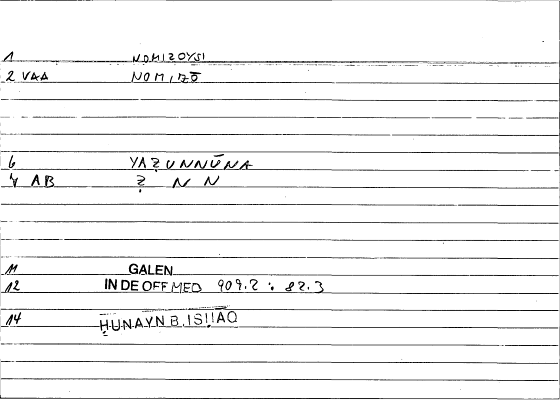 1 NOMIZOYSI
2 VAA NOMIZŌ
6 YAẒUNNŪNA
7 AB Ẓ N N
11 GALEN
12 IN DE OFF MED 909.2 : 82.3
14 ḤUNAYN B. ISḤAQ